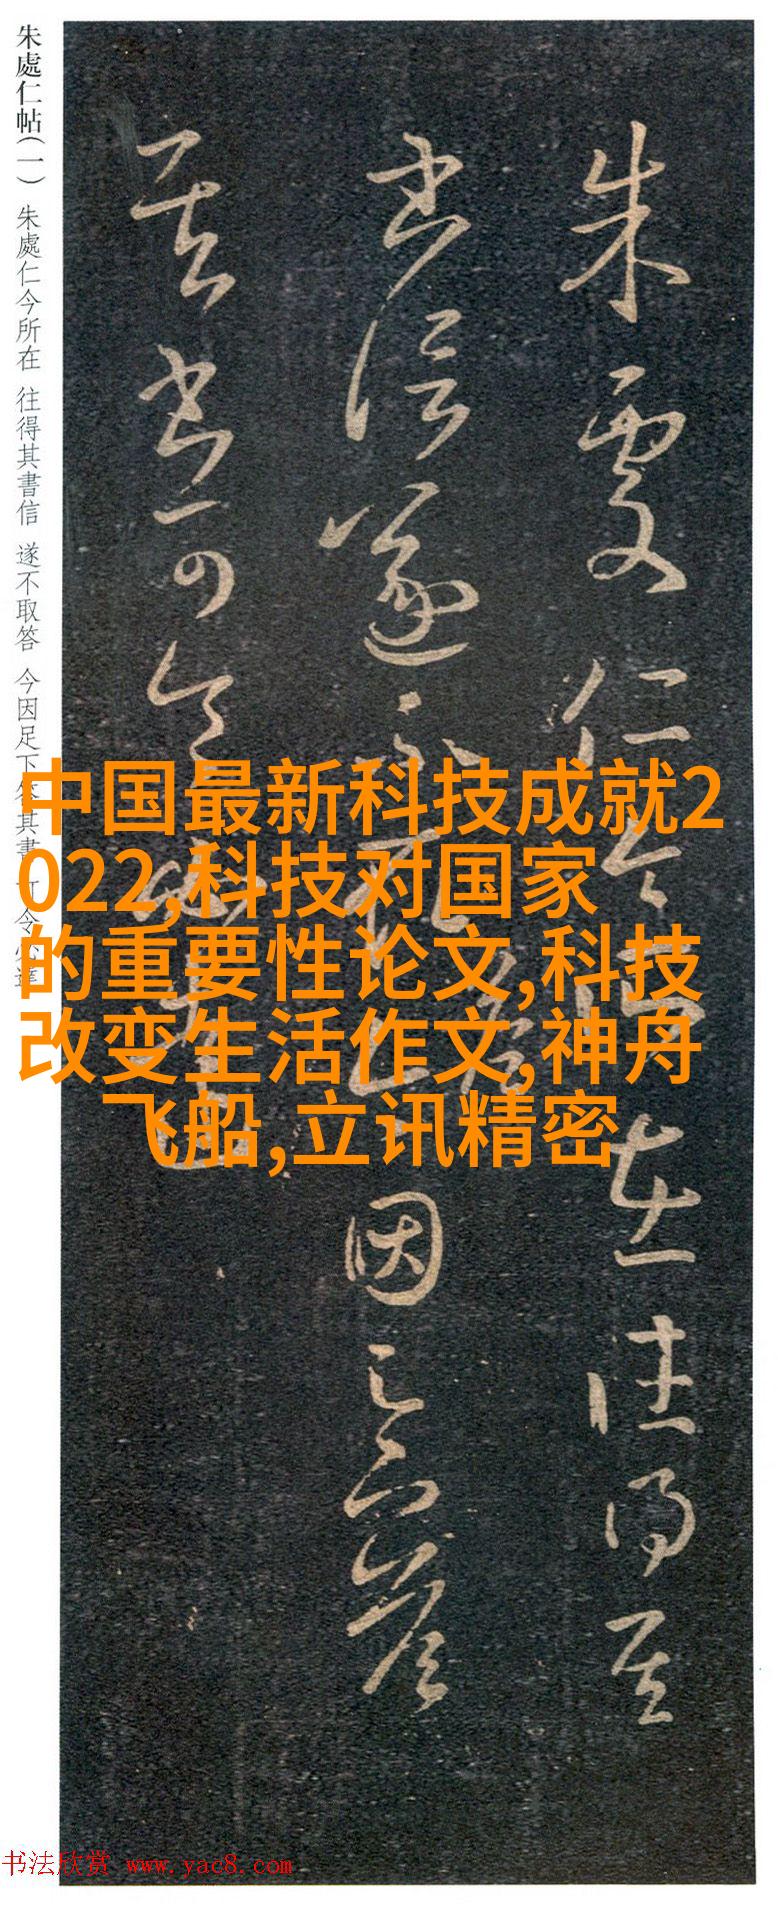 朱處仁帖(一) 朱處仁今所在 往得其書信 遂不取答 今因足下答其書 可令必達
朱處仁今所在往得其
書信遂不取答今因足下答
其書可令必達
中国最新科技成就2
022,科技对国家
的重要性论文,科技
改变生活作文,神舟
飞船,立讯精密
书法欣赏 www.yac8.com